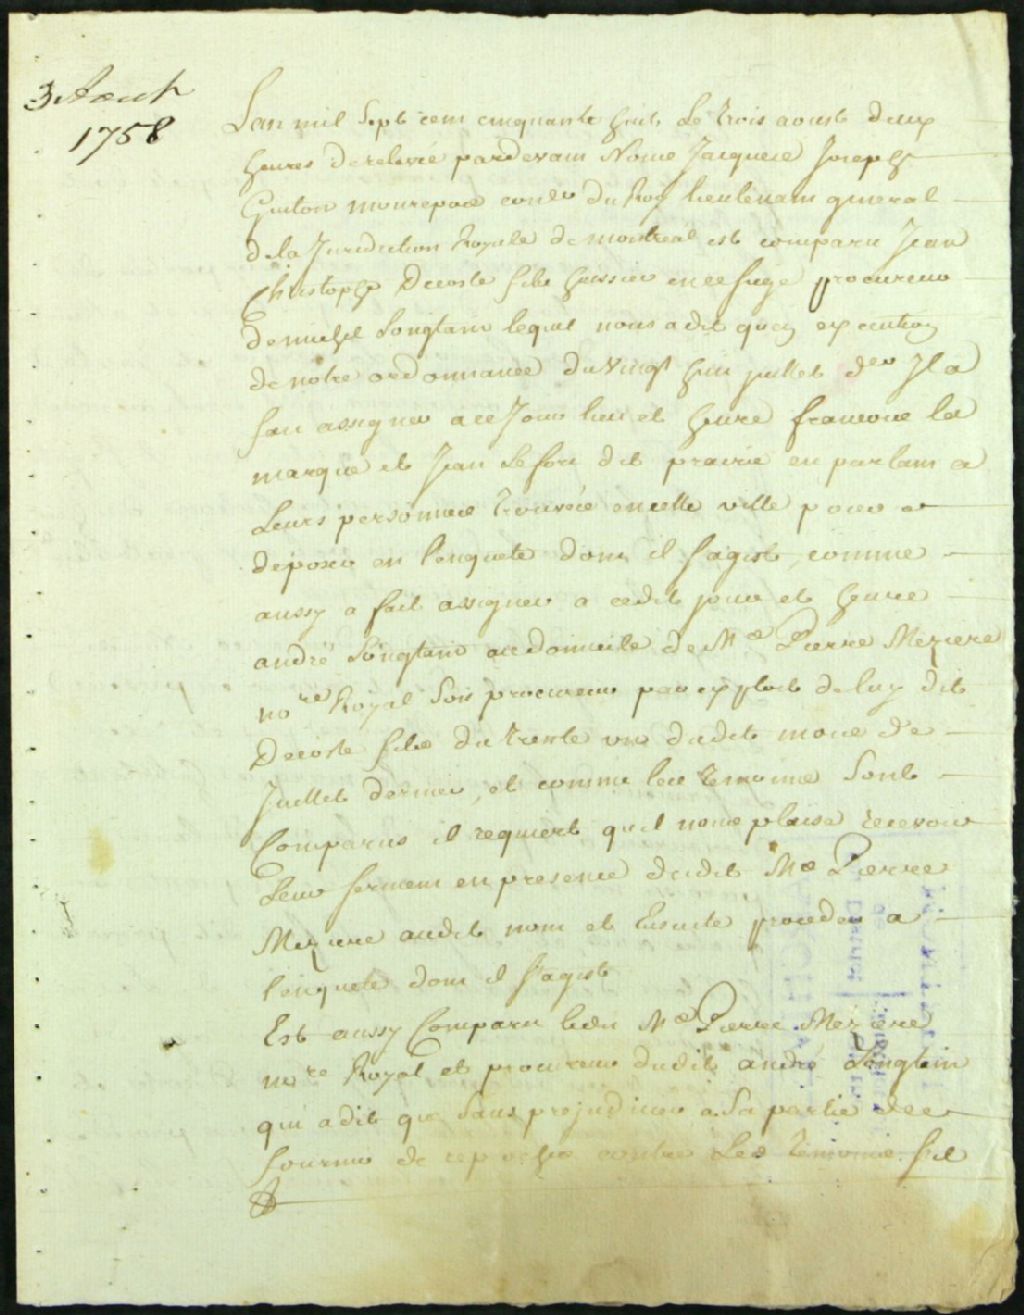 3 Aout
1758
Lan mil Sept cent cinquante huit Le trois aoust deux
heures de relevée pardevant Nous Jacques Joseph
Guiton monrepos conser du Roy lieutenant general
de la Juridiction Royale de montreal est comparu Jean
Christophe Decoste fils huissier en ce siege procureur
de michel Longtain lequel nous a dit quen execution
de notre ordonnance du vingt huit juillet der Il a
fait assigner a ce Jour lieu et heure francois la
marque et Jean Lefort dit prairie en parlant a
Leurs personnes trouvée en cette ville pour
deposer en l'enquete dont il sagist, comme
aussy a fait assigner a cedit jour et heure
andré Longtain au domicile de Me Pierre Meziere
nore Royal Son procureur par exploit de luy dit
Decoste fils du trente un dudit mois de
Juillet dernier, et comme les temoins Sont
Comparus il requiert quil nous plaise recevoir
Leur serment en presence dudit Me Pierre
Meziere audit nom et Ensuite proceder a
l'enquete dont il s'agist
Est aussy Comparu ledit Me Pierre Meziere
nore Royal et procureur dudit andré Longtin
qui a dit que Sans prejudicier a Sa partie de
fournir de reproche contre Les temoins sil